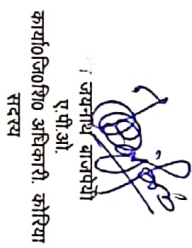 जयनाथ बाजपेयी
ए.पी.ओ.
कार्या0जि0शि0 अधिकारी. कोरिया
सदस्य